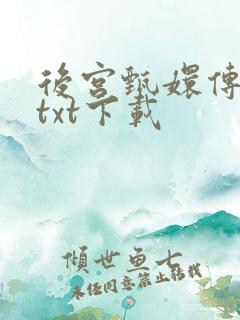 後宮甄嬛傳
txt下載
傾世魚七
未經同意禁止轉載